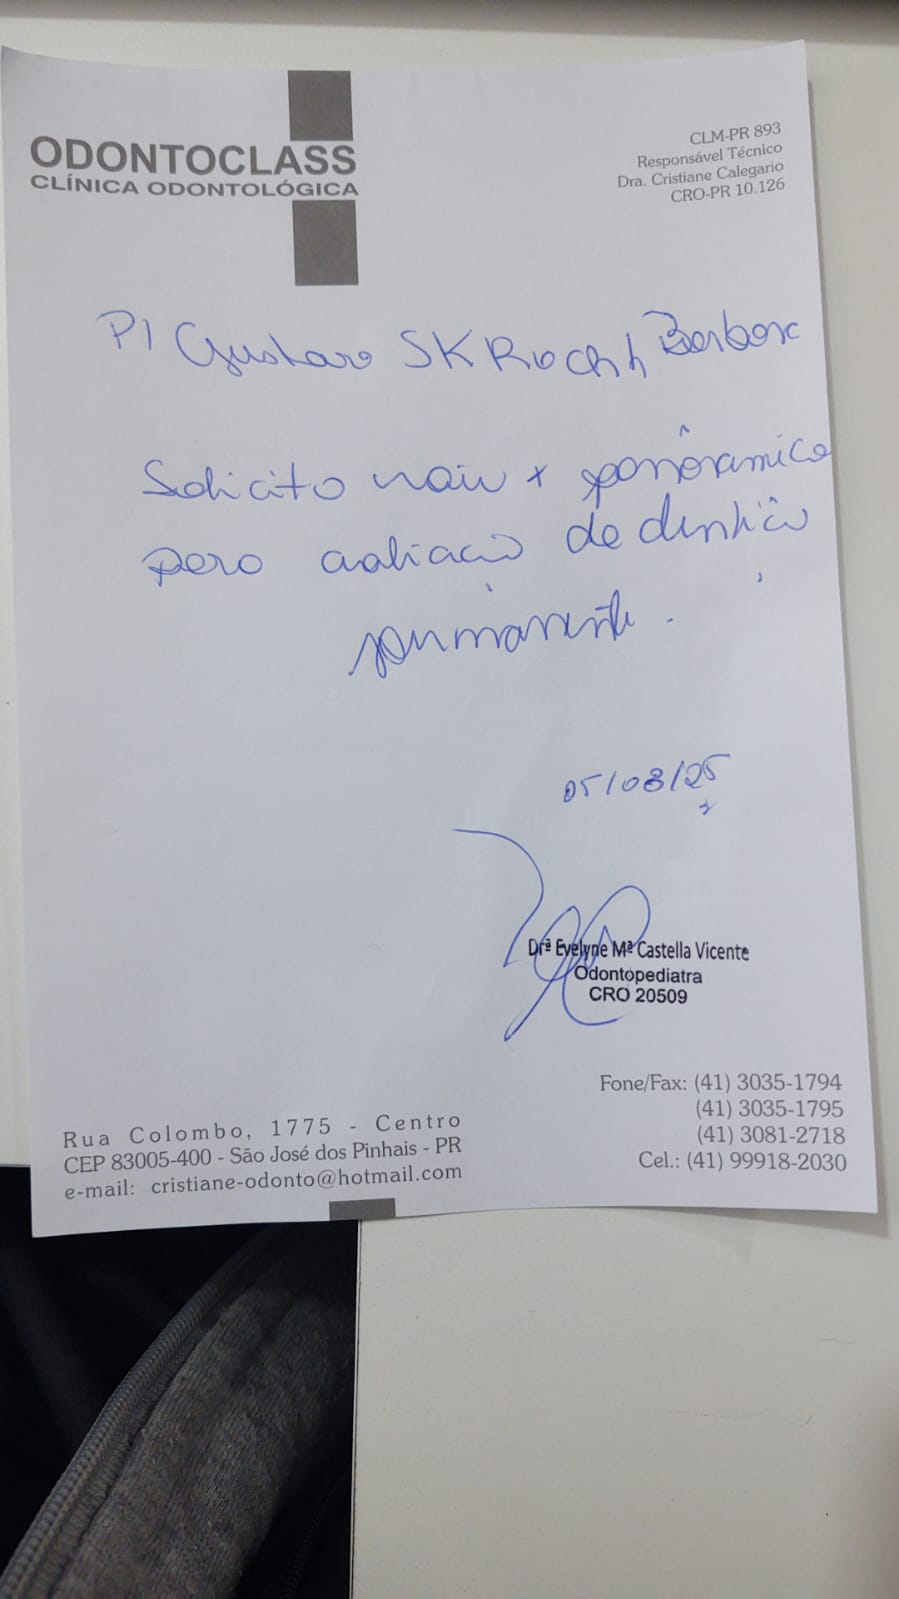 ODONTOCLASS
CLÍNICA ODONTOLÓGICA
CLM-PR 893
Responsável Técnico
Dra. Cristiane Calegario
CRO-PR 10.126
P/ Gustavo Barbosa
Solicito raio x panorâmico
para avaliação de dentição
permanente.
05/08/25
Drª Evelyne Mª Castella Vicente
Odontopediatra
CRO 20509
Rua Colombo, 1775 - Centro
CEP 83005-400 - São José dos Pinhais - PR
e-mail: cristiane-odonto@hotmail.com
Fone/Fax: (41) 3035-1794
(41) 3035-1795
(41) 3081-2718
Cel.: (41) 99918-2030